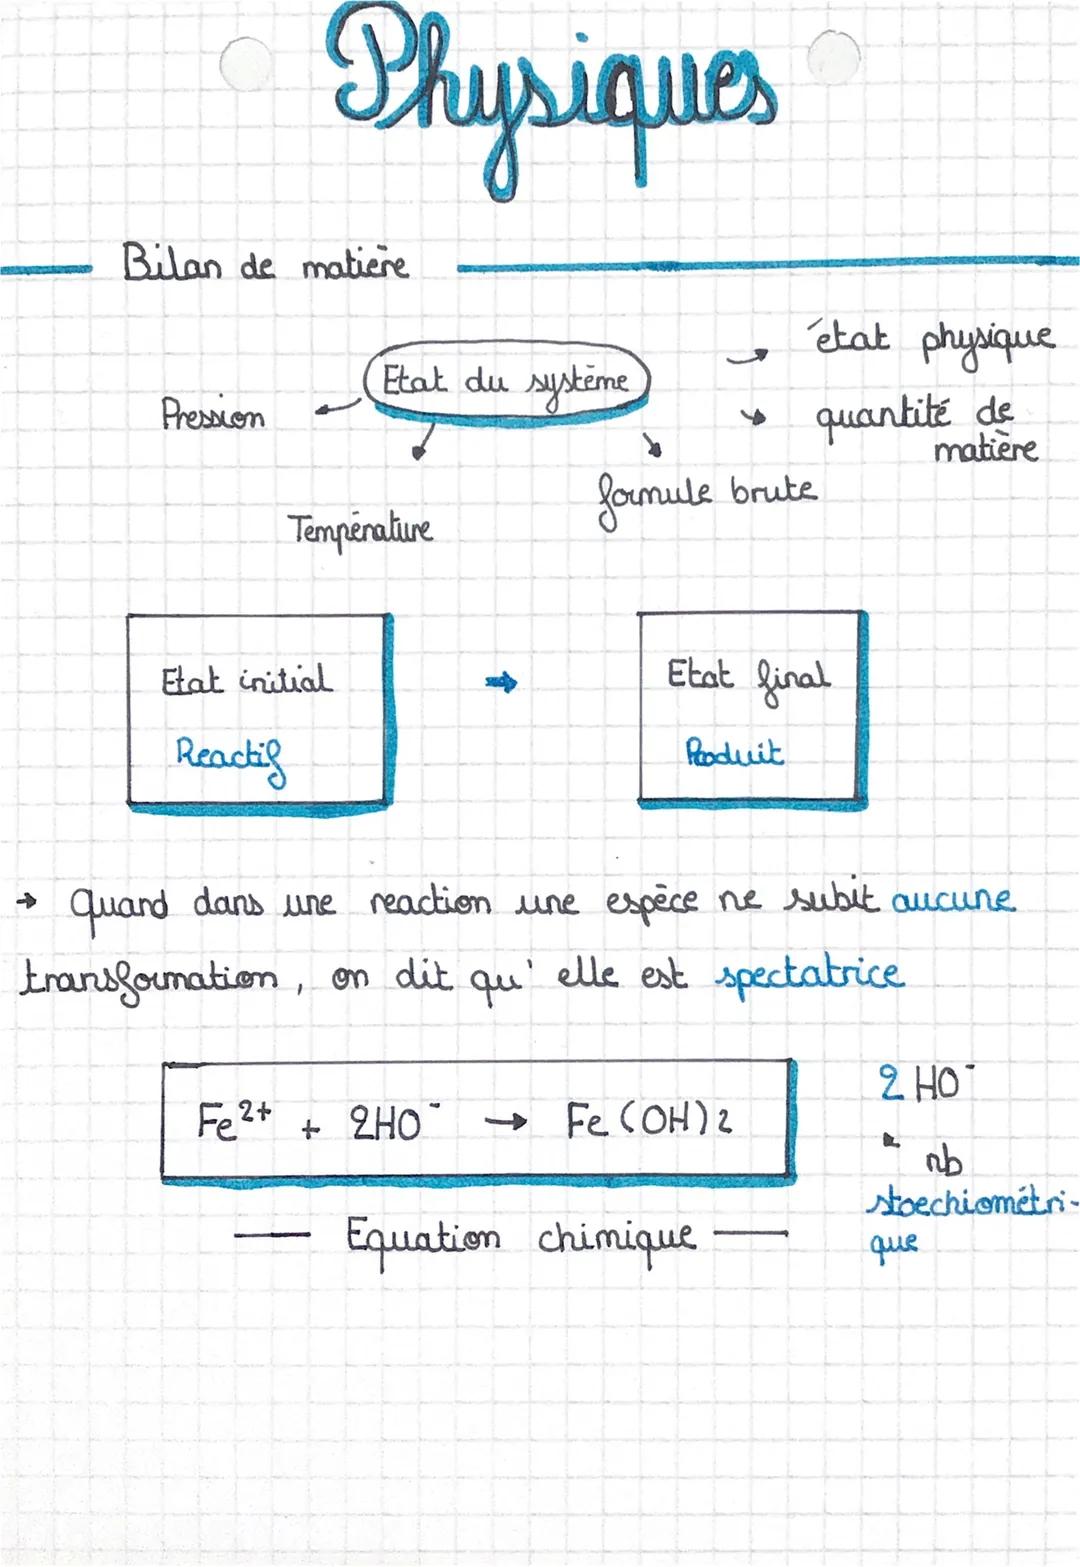 Physiques
Bilan de matière
Etat du système
état physique
Pression
quantité de
matière
formule brute
Température
Etat initial
→
Etat final
Reactif
Produit
→ Quand dans une reaction une espèce ne subit aucune
transformation, on dit qu'elle est spectatrice
Fe²⁺ + 2HO⁻ → Fe(OH)2
2 HO⁻
nb
stoechiométri-
que
Equation chimique